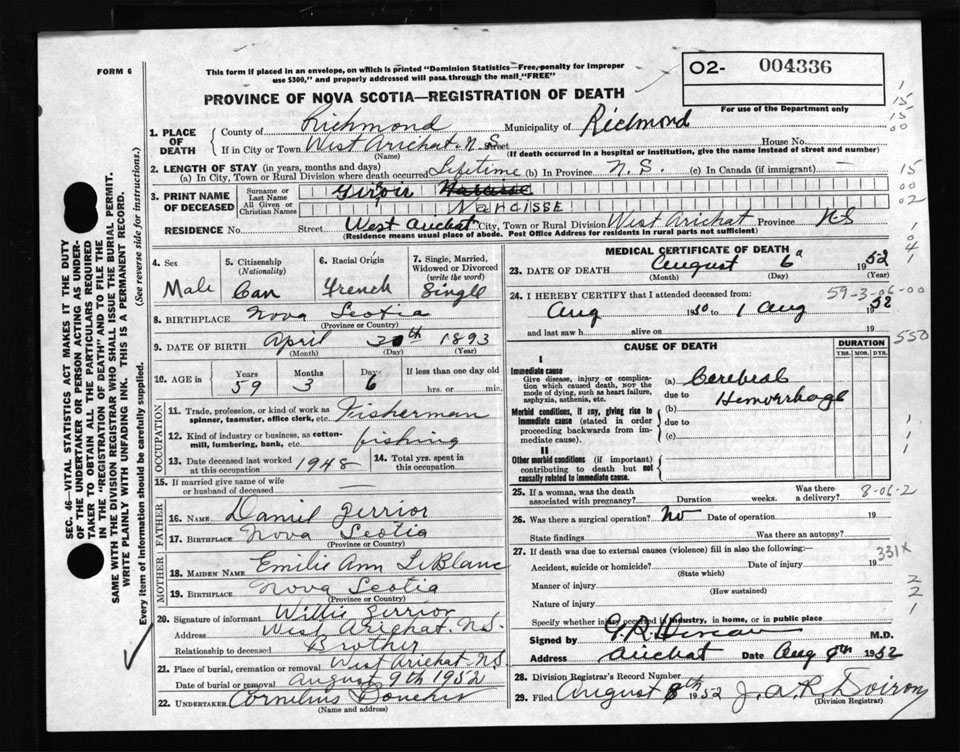 FORM 6
This form if placed in an envelope, on which is printed "Dominion Statistics—Free, penalty for improper
use $300," and properly addressed will pass through the mail "FREE"
O2- 004336
For use of the Department only
PROVINCE OF NOVA SCOTIA—REGISTRATION OF DEATH
1. PLACE OF DEATH
County of Richmond Municipality of Richmond
If in City or Town West Arichat. N.S. Street House No.
(Name) (If death occurred in a hospital or institution, give the name instead of street and number)
2. LENGTH OF STAY (in years, months and days)
(a) In City, Town or Rural Division where death occurred Lifetime (b) In Province N.S. (c) In Canada (if immigrant)
3. PRINT NAME OF DECEASED
Surname or Last Name Giroir Narcisse
All Given or Christian Names NARCISSE
RESIDENCE No. Street West Arichat City, Town or Rural Division West Arichat Province N.S
(Residence means usual place of abode. Post Office Address for residents in rural parts not sufficient)
4. Sex
Male
5. Citizenship
(Nationality)
Can
6. Racial Origin
French
7. Single, Married, Widowed or Divorced
(write the word)
Single
8. BIRTHPLACE Nova Scotia
(Province or Country)
9. DATE OF BIRTH April 30th 1893
(Month) (Day) (Year)
10. AGE in
Years 59
Months 3
Days 6
If less than one day old
hrs. or min.
OCCUPATION
11. Trade, profession, or kind of work as
spinner, teamster, office clerk, etc. Fisherman
12. Kind of industry or business, as cotton-
mill, lumbering, bank, etc. fishing
13. Date deceased last worked
at this occupation 1948
14. Total yrs. spent in
this occupation
15. If married give name of wife
or husband of deceased
FATHER
16. NAME Daniel Gerrior
17. BIRTHPLACE Nova Scotia
(Province or Country)
MOTHER
18. MAIDEN NAME Emilie Ann LeBlanc
19. BIRTHPLACE Nova Scotia
(Province or Country)
20. Signature of informant Willie Gerrior
Address West Arichat. N.S.
Relationship to deceased Brother
21. Place of burial, cremation or removal West Arichat N.S
Date of burial or removal August 9th 1952
22. UNDERTAKER Cornelius
(Name and address)
MEDICAL CERTIFICATE OF DEATH
23. DATE OF DEATH August 6 1952
(Month) (Day) (Year)
59-3-06-00
24. I HEREBY CERTIFY that I attended deceased from:
Aug 1950 to 1 Aug 1952
and last saw h alive on 19
CAUSE OF DEATH
DURATION
YRS. MOS. DYS.
I
Immediate cause
Give disease, injury or complica-
tion which caused death, NOT the
mode of dying, such as heart failure,
asphyxia, asthenia, etc.
(a) Cerebral
due to Hemorrhage
Morbid conditions, if any, giving rise to
immediate cause (stated in order
proceeding backwards from im-
mediate cause).
(b)
due to
(c)
II
Other morbid conditions (if important)
contributing to death but not
causally related to immediate cause.
25. If a woman, was the death
associated with pregnancy? Duration weeks. Was there a delivery?
8-06-2
26. Was there a surgical operation? No Date of operation 19
State findings Was there an autopsy?
27. If death was due to external causes (violence) fill in also the following:—
331X
Accident, suicide or homicide? Date of injury 19
(State which)
Manner of injury
(How sustained)
Nature of injury
Specify whether injury occurred in industry, in home, or in public place
Signed by M.D.
Address Arichat Date Aug 1952
28. Division Registrar's Record Number
29. Filed August 8th 1952 J.A.R. Doiron
(Division Registrar)
SEC. 46—VITAL STATISTICS ACT MAKES IT THE DUTY
OF THE UNDERTAKER OR PERSON ACTING AS UNDER-
TAKER TO OBTAIN ALL THE PARTICULARS REQUIRED
IN THE "REGISTRATION OF DEATH" AND TO FILE THE
SAME WITH THE DIVISION REGISTRAR WHO SHALL ISSUE THE BURIAL PERMIT.
WRITE PLAINLY WITH UNFADING INK. THIS IS A PERMANENT RECORD.
Every item of information should be carefully supplied. (See reverse side for instructions.)
1
15
15
00
15
00
02
1
04
1
550
1
1
1
2
2
1